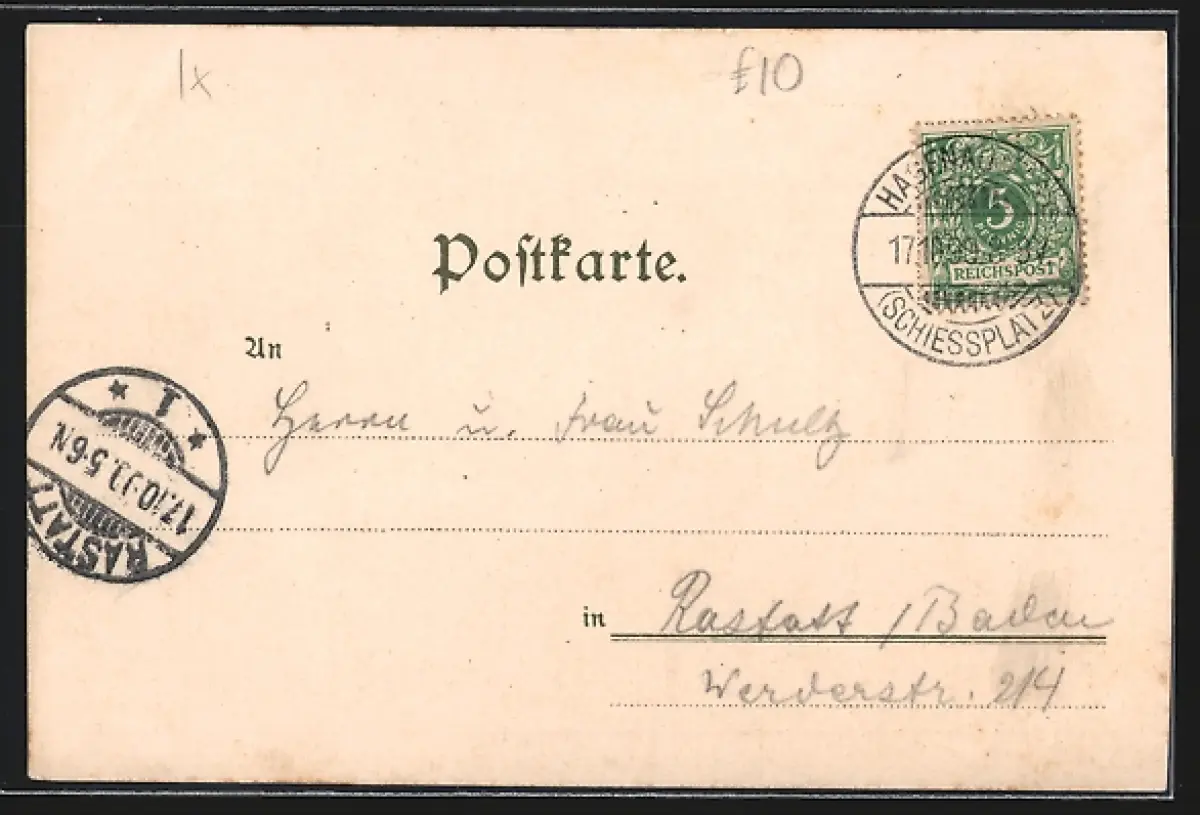 1x
£10
HAGENAU
5
REICHSPOST
17.10.99
(SCHIESSPLATZ)
Postkarte.
An
Herrn u. Frau Schultz
1
17.10.99.5-6N.
RASTATT
in Rastatt / Baden
Werderstr. 214